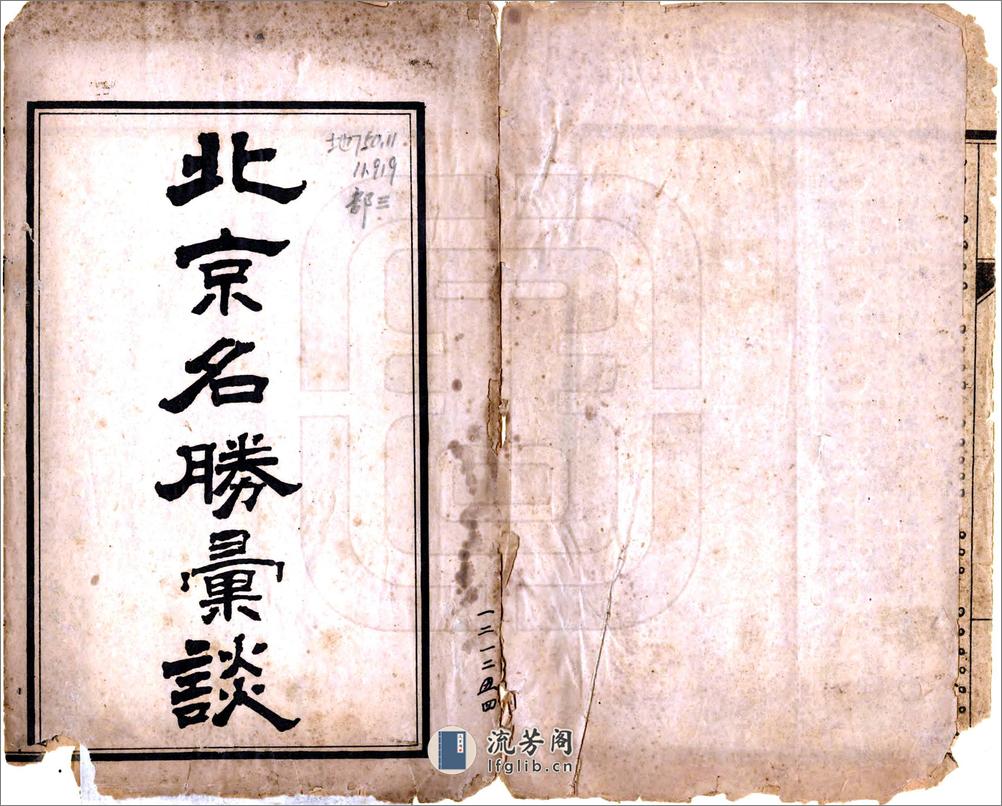 北京名勝彙談
地750.11
11.919
部三
一二一二五四
流芳阁
lfglib.cn